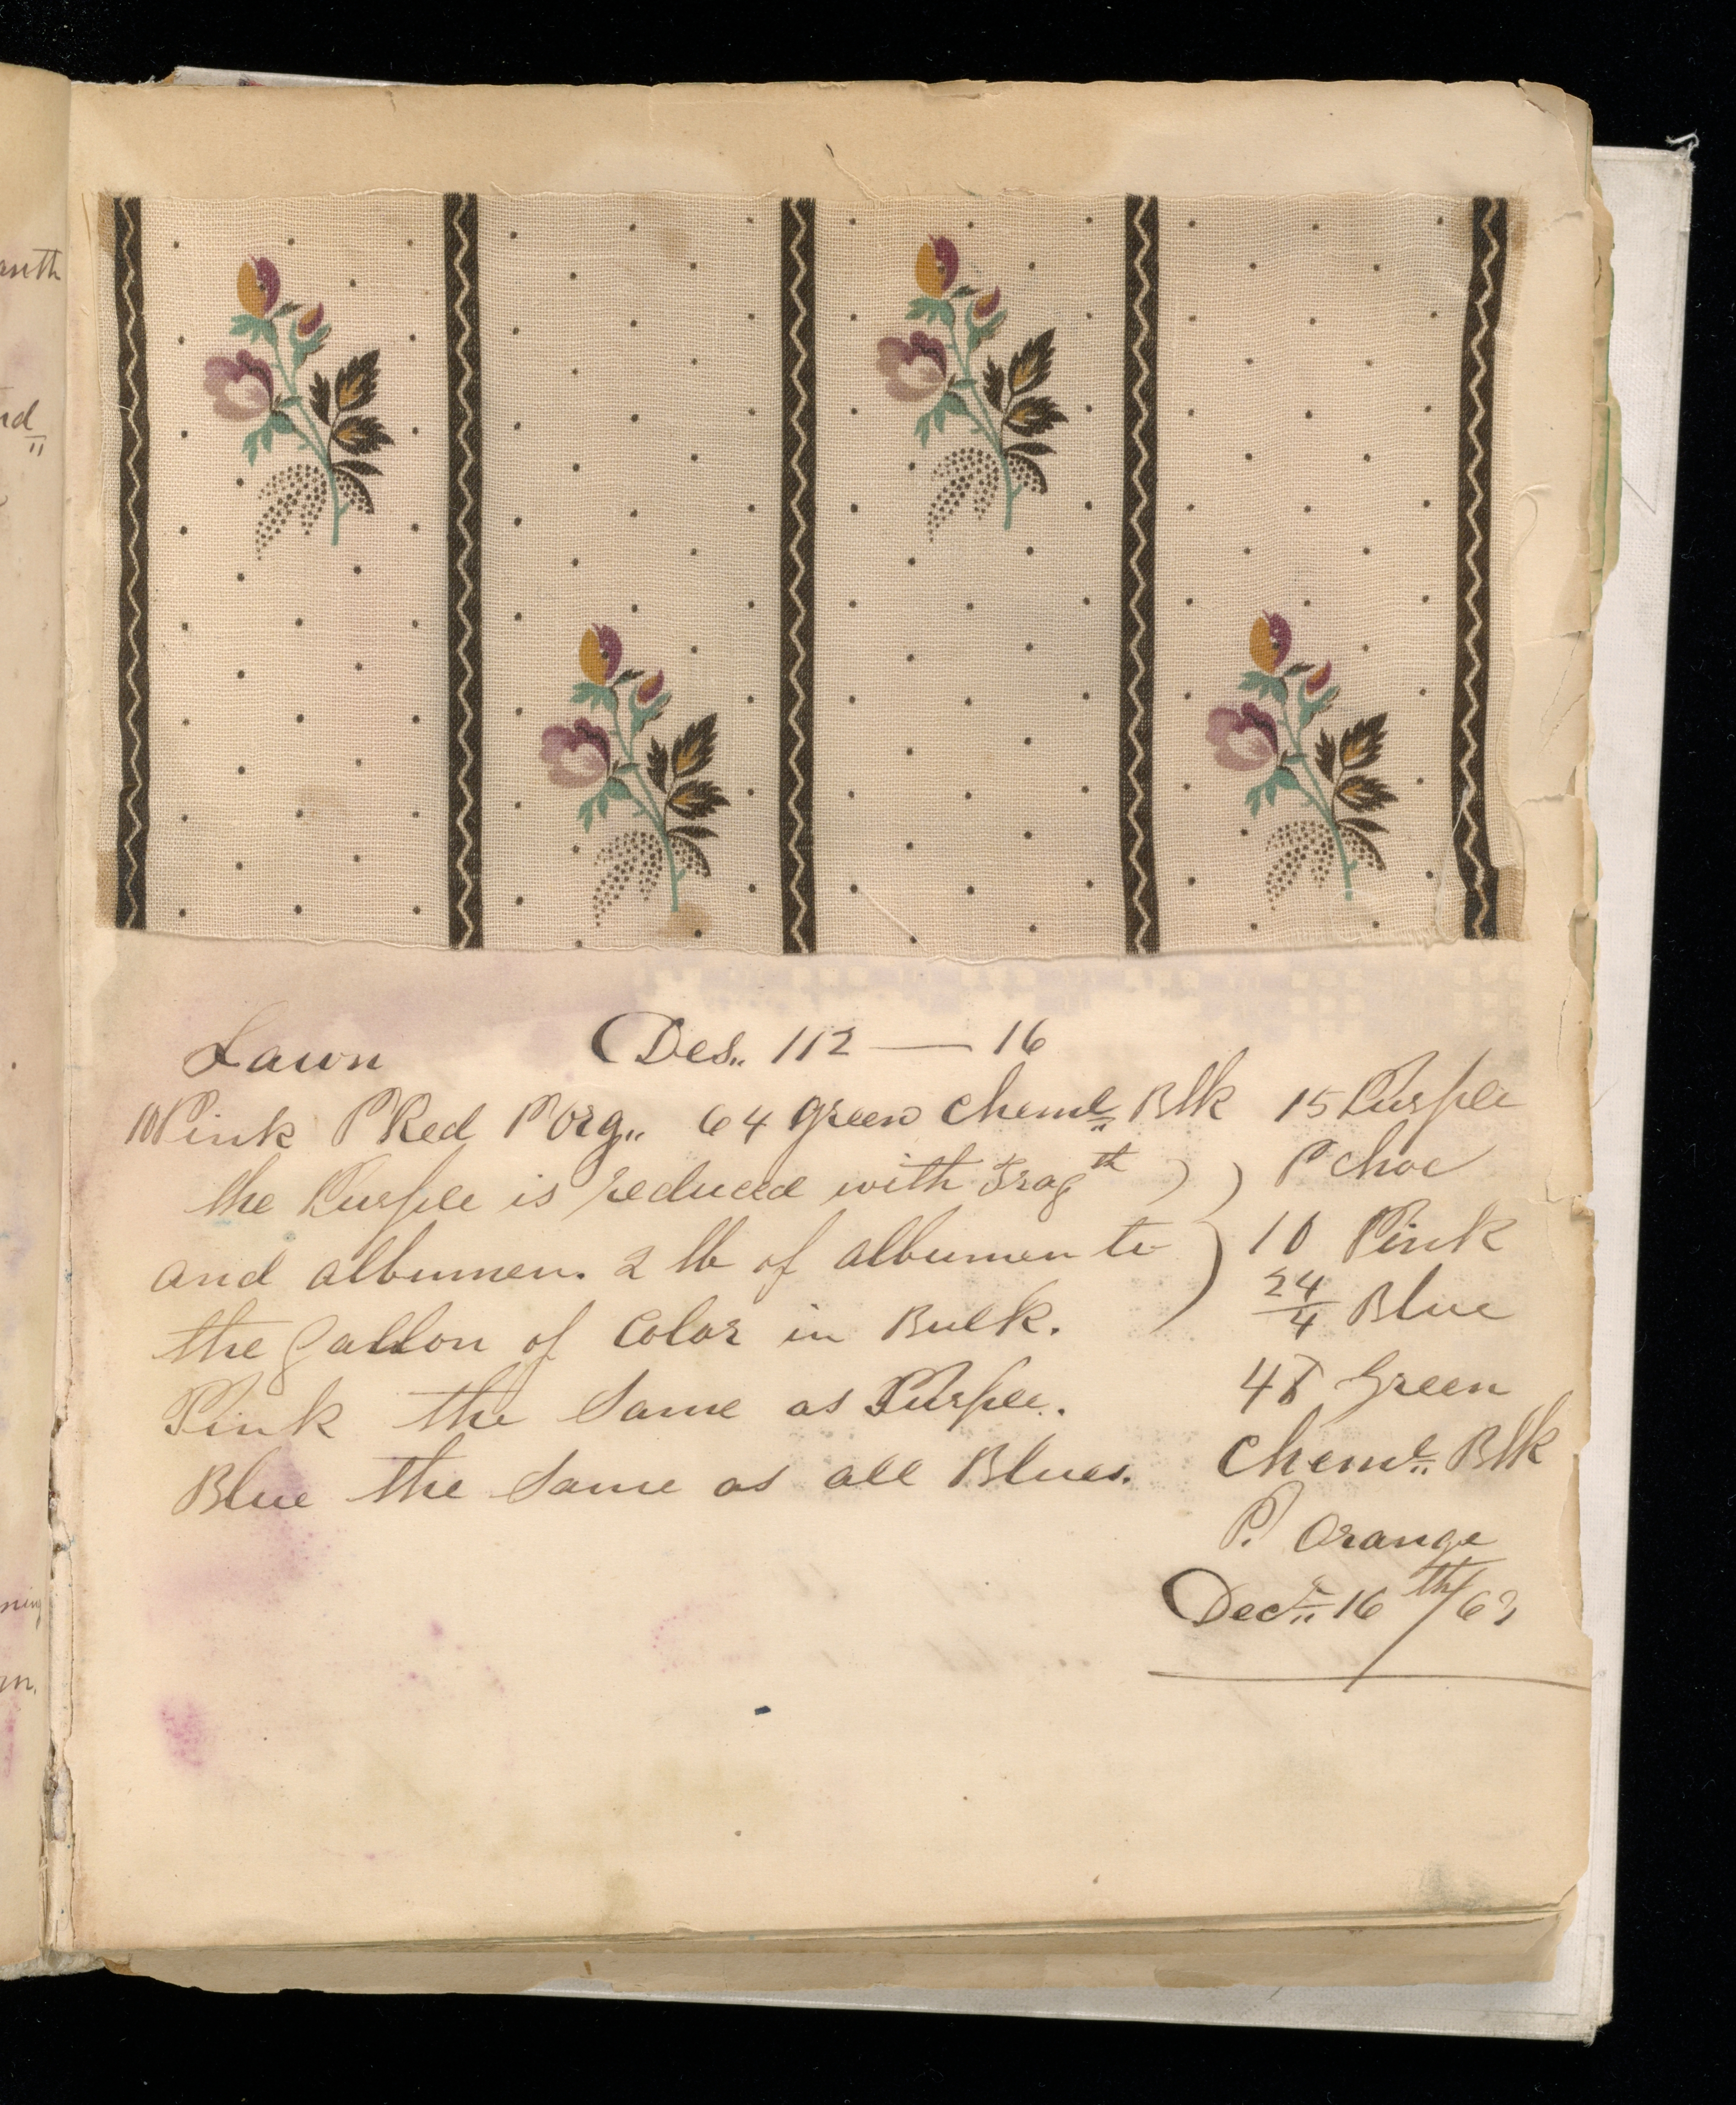 anth
nd
ning
m.
Lawn Des. 112 — 16
10 Pink P Red P Org. 64 green Cheml Blk 15 Purple
the Purple is reduced with Tragth ) ) P Choc
and albumen. 2 lb of albumen to ) 10 Pink
24/4 Blue
the gallon of Color in Bulk.
Pink the Same as Purple. 48 Green
Blue the Same as all Blues. Cheml Blk
P. Orange
Decr 16th/63